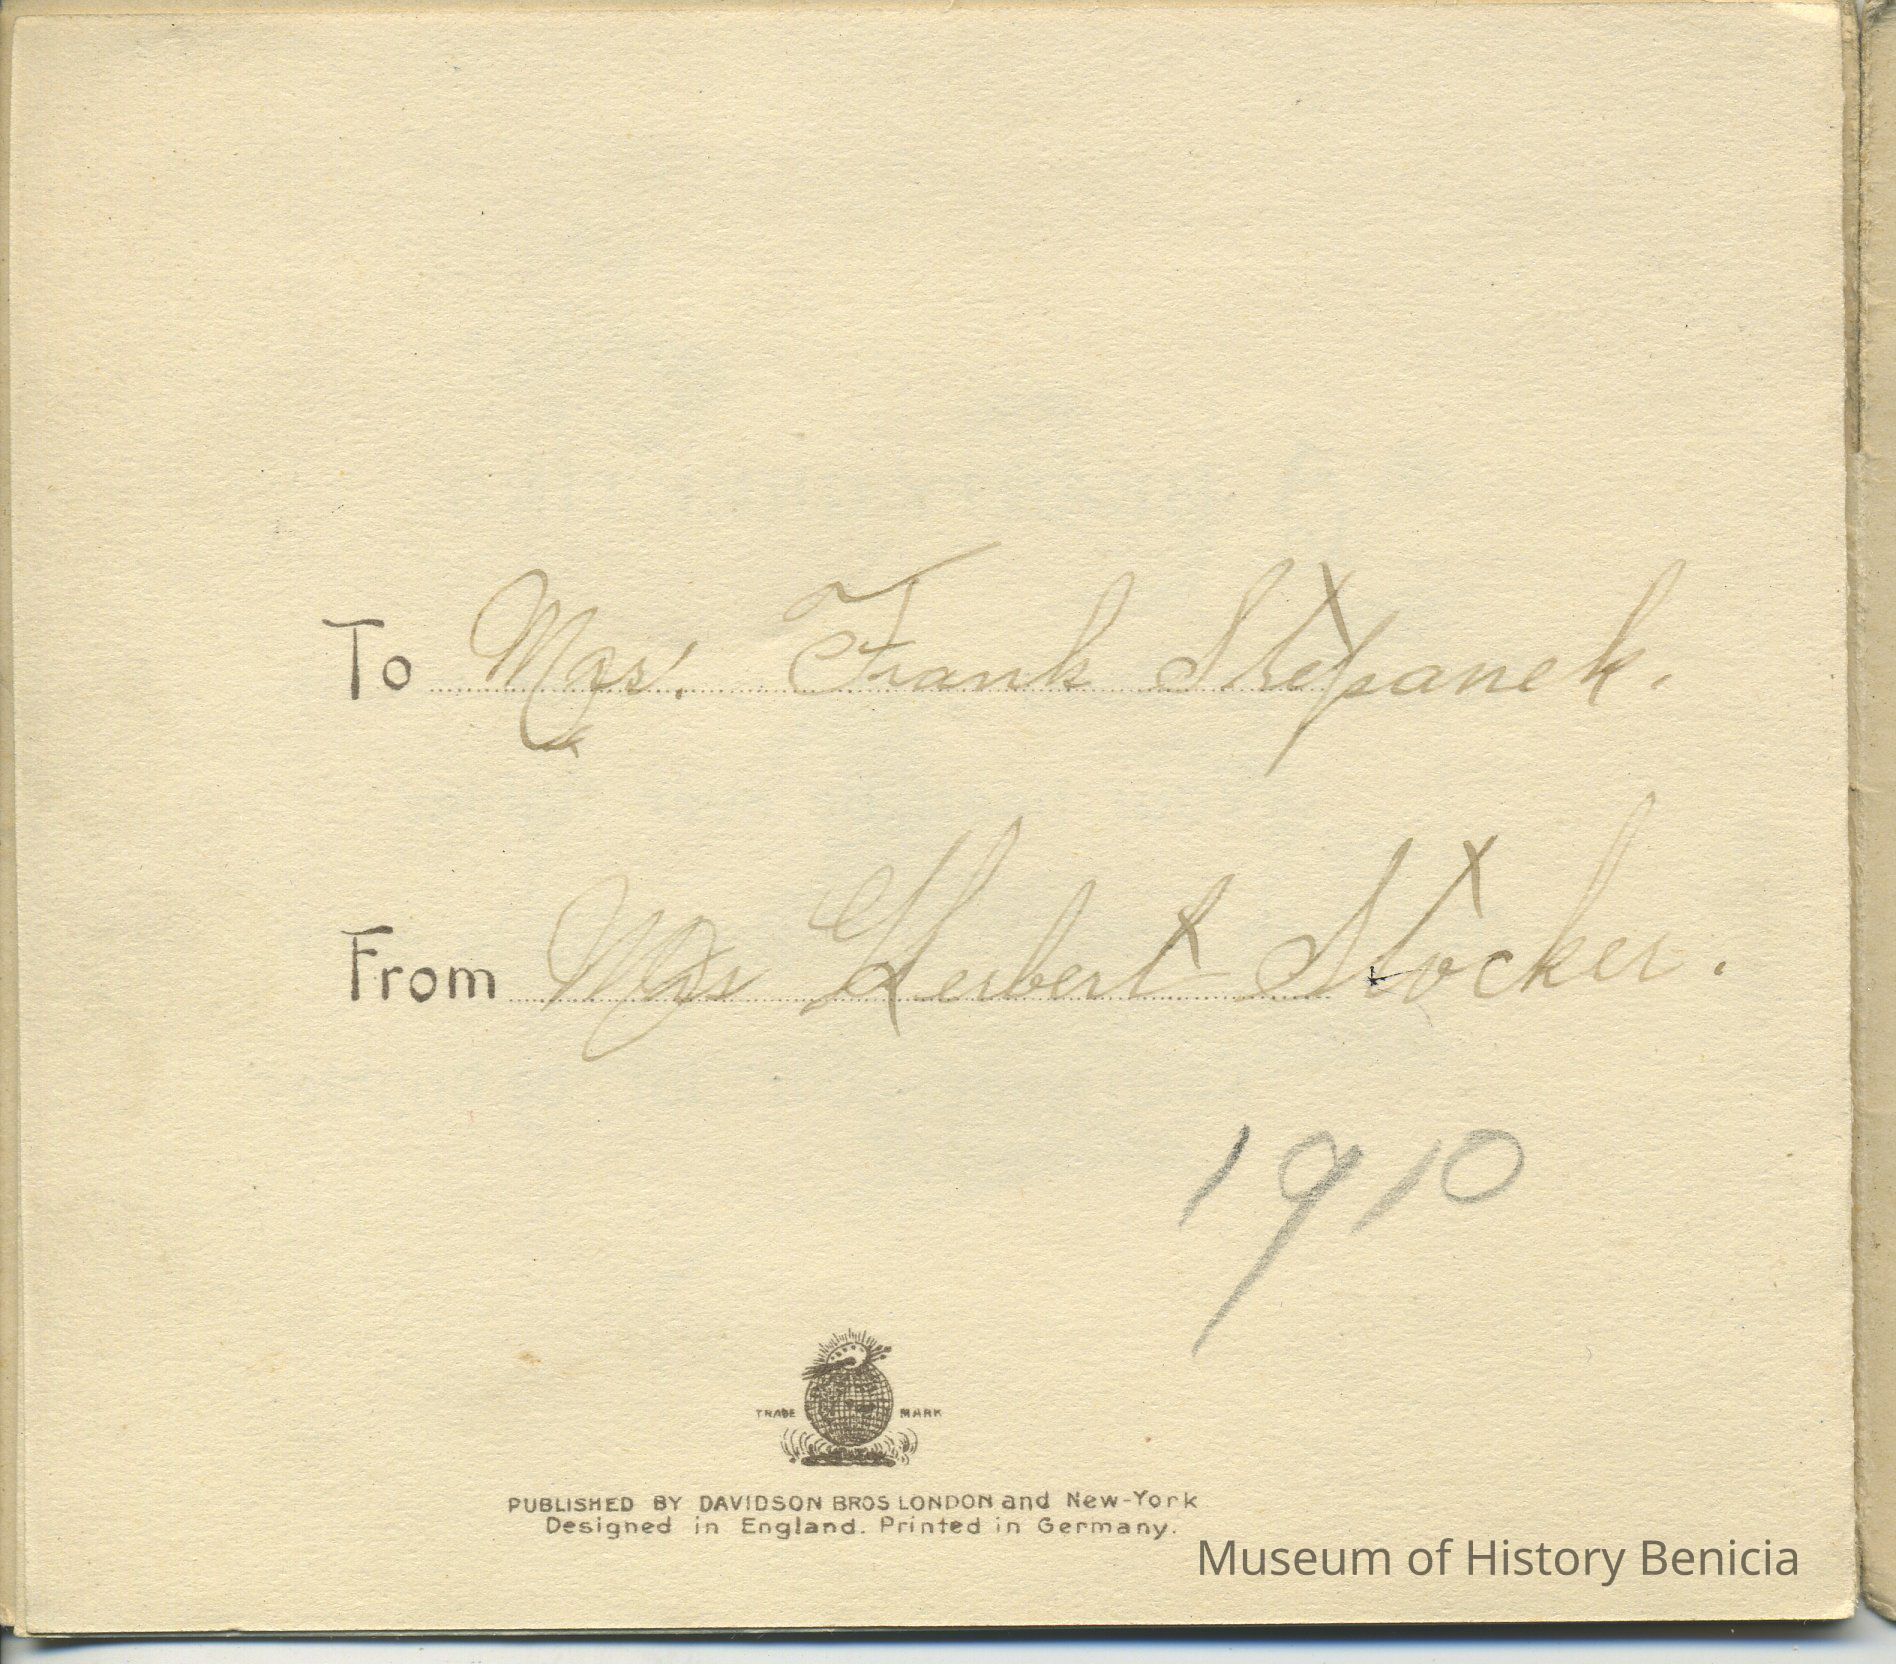 To Mrs. Frank Stepanek.
From Mrs Herbert Stocker.
1910
TRADE MARK
PUBLISHED BY DAVIDSON BROS LONDON and New-York
Designed in England. Printed in Germany.
Museum of History Benicia